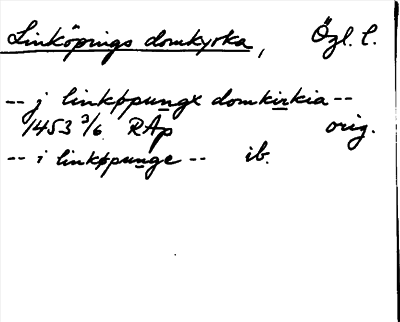 Linköpings domkyrka, Ögl. l.
-- j linkøpungx domkirkia --
1453 3/6 RAp orig.
-- i linkøpunge -- ib.